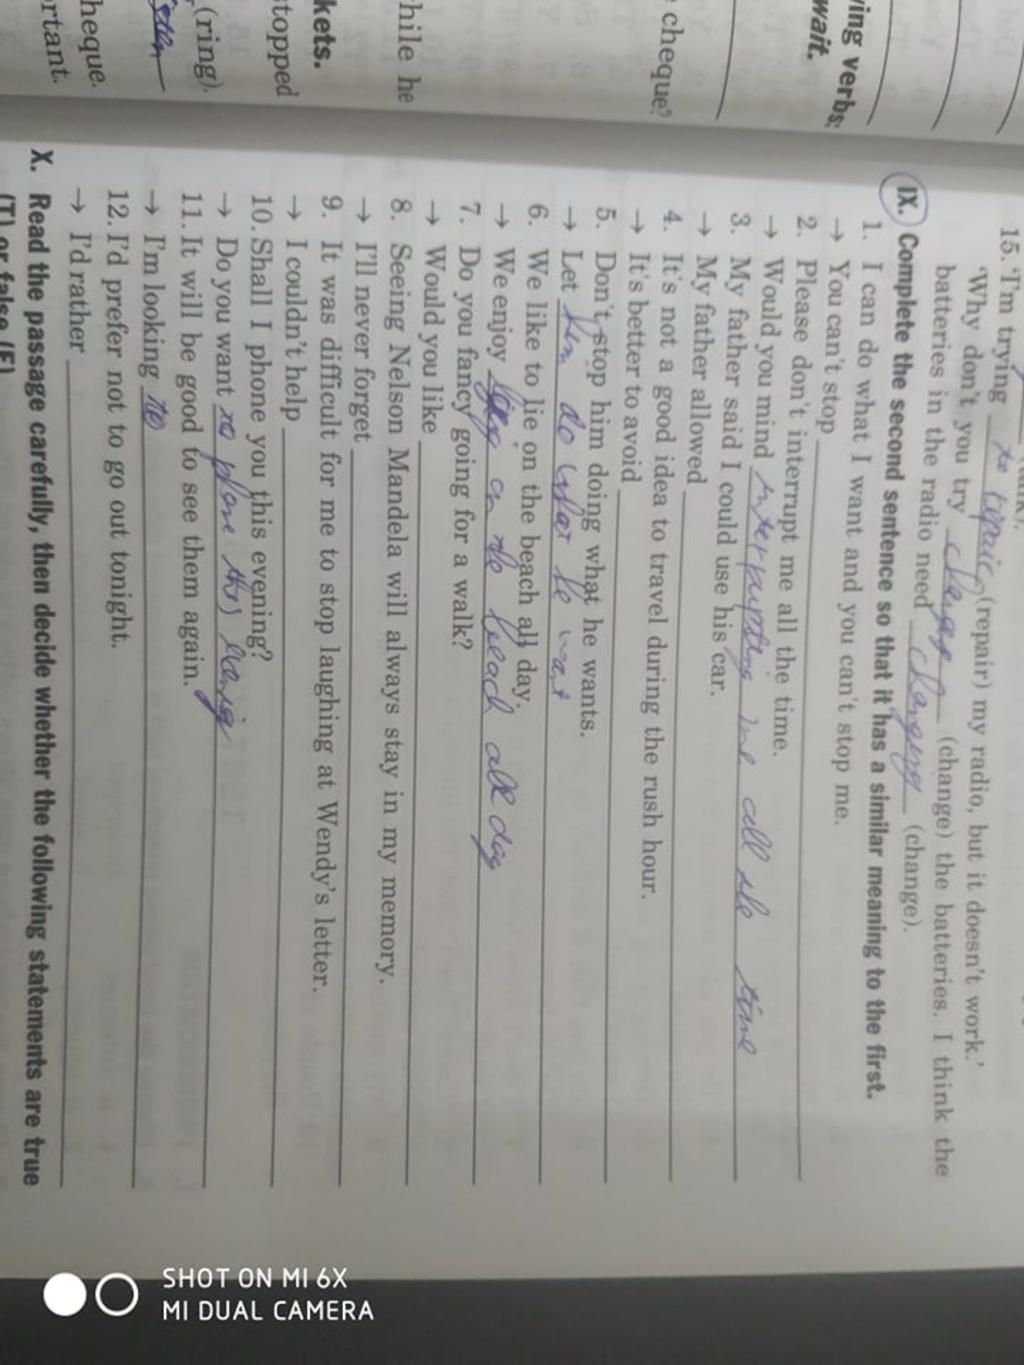 15. 'I'm trying to repair (repair) my radio, but it doesn't work.'
'Why don't you try change (change) the batteries. I think the
batteries in the radio need changing (change).
IX. Complete the second sentence so that it has a similar meaning to the first.
1. I can do what I want and you can't stop me.
→ You can't stop
2. Please don't interrupt me all the time.
→ Would you mind interrupting me all the time
3. My father said I could use his car.
→ My father allowed
4. It's not a good idea to travel during the rush hour.
→ It's better to avoid
5. Don't stop him doing what he wants.
→ Let him do what he want
6. We like to lie on the beach all day.
→ We enjoy on the beach all day
7. Do you fancy going for a walk?
→ Would you like
8. Seeing Nelson Mandela will always stay in my memory.
→ I'll never forget
9. It was difficult for me to stop laughing at Wendy's letter.
→ I couldn't help
10. Shall I phone you this evening?
→ Do you want to phone this
11. It will be good to see them again.
→ I'm looking to
12. I'd prefer not to go out tonight.
→ I'd rather
X. Read the passage carefully, then decide whether the following statements are true
(T) or false (F)
ving verbs;
wait.
cheque?
hile he
kets.
stopped
(ring).
heque.
rtant.
SHOT ON MI 6X
MI DUAL CAMERA